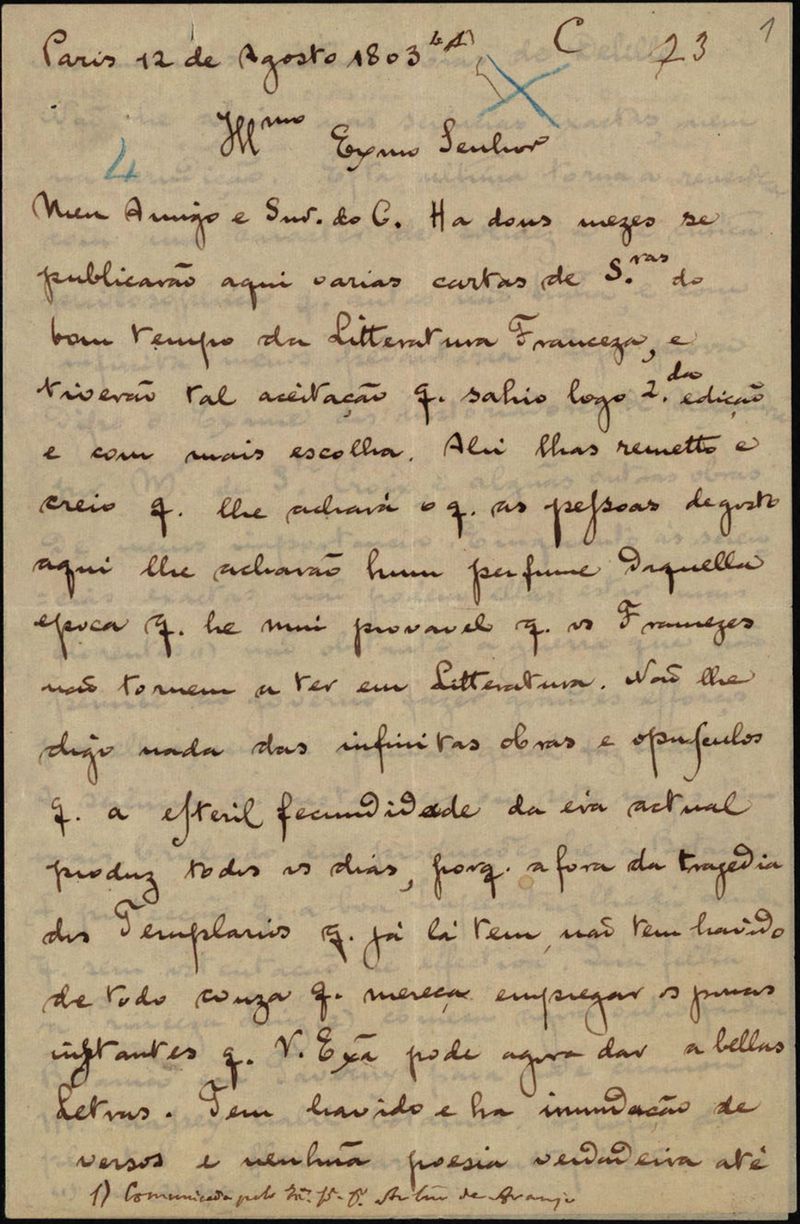 Paris 12 de Agosto 1803 1)
C 73 1
4
Illmo Exmo Senhor
Meu Amigo e Snr. do C. Ha dous mezes se
publicarão aqui varias cartas de S.ras do
bom tempo da Litteratura Franceza, e
tiverão tal aceitação q. sahio logo 2.da edição
e com mais escolha. Ahi lhas remetto e
creio q. lhe achará o q. as peſsoas de gosto
aqui lhe acharão hum perfume daquella
epoca q. he mui provavel q. os Francezes
naõ tornem a ter em Litteratura. Naõ lhe
digo nada das infinitas obras e opuſculos
q. a eſteril fecundidade da era actual
produz todos os dias, porq. a fora da tragedia
dos Templarios q. já lá tem, naõ tem havido
de todo couza q. mereça empregar os poucos
instantes q. V. Exã pode agora dar a bellas
Letras. Tem havido e ha inundação de
versos e nenhuã poesia verdadeira até
1) Comunicada pelo Artur de Araujo